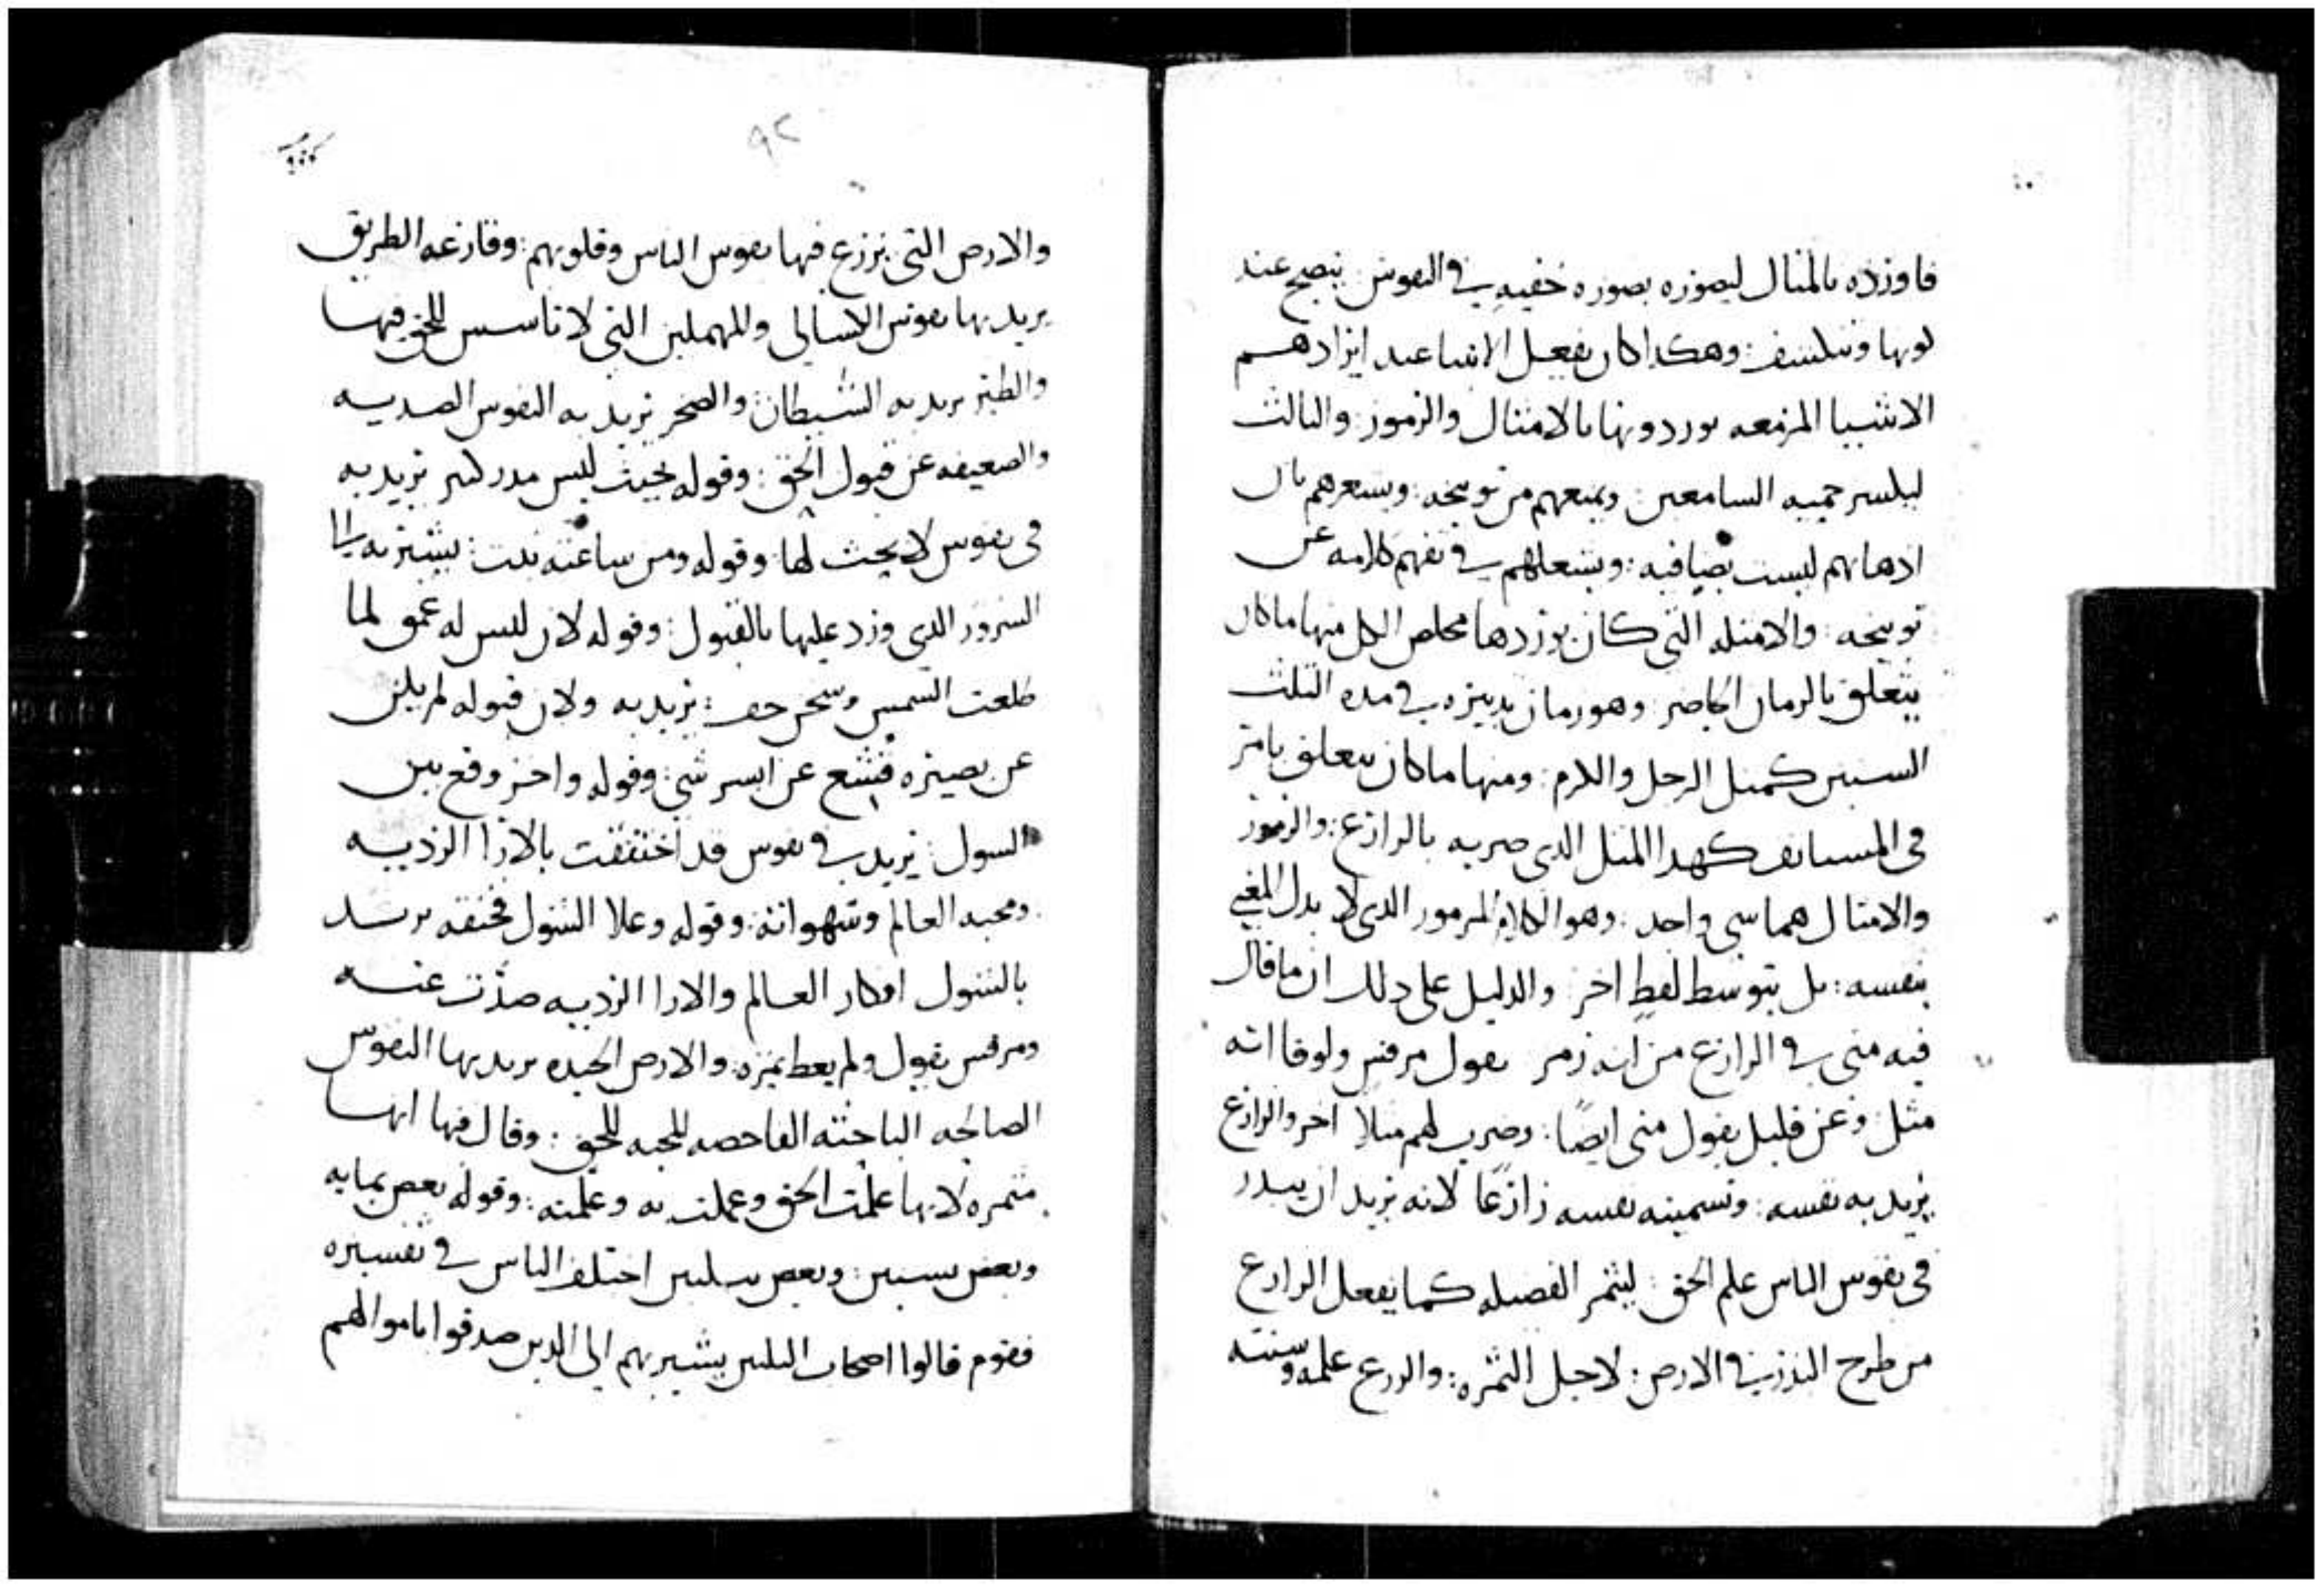 فاورده بالمثال ليصوره بصوره خفيه في النفوس ينصح عند
لونها وتنكشف: وهكدا كان يفعل الانبيا عند ايرادهم
الاشيا المزمعه يوردونها بالامثال والرموز: والثالث
ليلسر حميه السامعين: ويمنعهم من توبيخه: ويشعرهم بان
ادهانهم ليست بصافيه: ويشغلهم في تفهم كلامه عن
توبيخه: والامثله التي كان يوردها مخلص الكل منها ما كان
يتعلق بالزمان الحاضر: وهو زمان تدبيره في مده الثلث
السنين كمثل الرجل والكرم: ومنها ما كان يتعلق بامر
في المستانف كهدا المثل الدي ضربه بالزارع: والرموز
والامثال هما شي واحد: وهو الكلام المرموز الدي لا يدل المعني
بنفسه: بل بتوسط لفظ اخر: والدليل علي دلك ان ما قال
فيه متي في الزارع من انه رمز يقول مرقس ولوقا انه
مثل: وعن قليل يقول متي ايضًا: وضرب لهم مثلا اخر والزارع
يريد به نفسه: وتسميته نفسه زارعًا لانه يريد ان يبدر
في نفوس الناس علم الحق: ليثمر الفضيله كما يفعل الزارع
من طرح البذر في الارض: لاجل الثمره: والزرع علمه وسنته
٩٢
والارض التي يزرع فيها نفوس الناس وقلوبهم: وقارعه الطريق
يريد بها نفوس الكسالي والمهملين التي لا تاسس للحق فيها
والطير يريد به الشيطان والصخر يريد به النفوس الصديه
والضعيفه عن قبول الحق: وقوله بحيث ليس مدر كثير يريد به
في نفوس لا بحث لها: وقوله ومن ساعته نبت: يشير به الى
السرور الدي ورد عليها بالقبول: وقوله لان ليس له عمق لما
طلعت الشمس وسخن جف: يريد به ولان قبوله لم يكن
عن بصيره فشع عن ايسر شي: وقوله واخر وقع بين
الشول: يريد في نفوس قد اختنقت بالارا الرديه
ومحبه العالم وشهواته: وقوله وعلا الشول فخنقه يريد
بالشول افكار العالم والارا الرديه صدت عنه
ومرقس يقول ولم يعط ثمره: والارض الجيده يريد بها النفوس
الصالحه الباحثه الفاحصه المحبه للحق: وقال فيها انها
مثمره لانها علمت الحق وعملت به وعلمته: وقوله بعض بمايه
وبعض بستين: وبعض بثلثين اختلف الناس في تفسيره
فقوم قالوا اصحاب الثلثين يشير بهم الى الدين صدقوا باموالهم